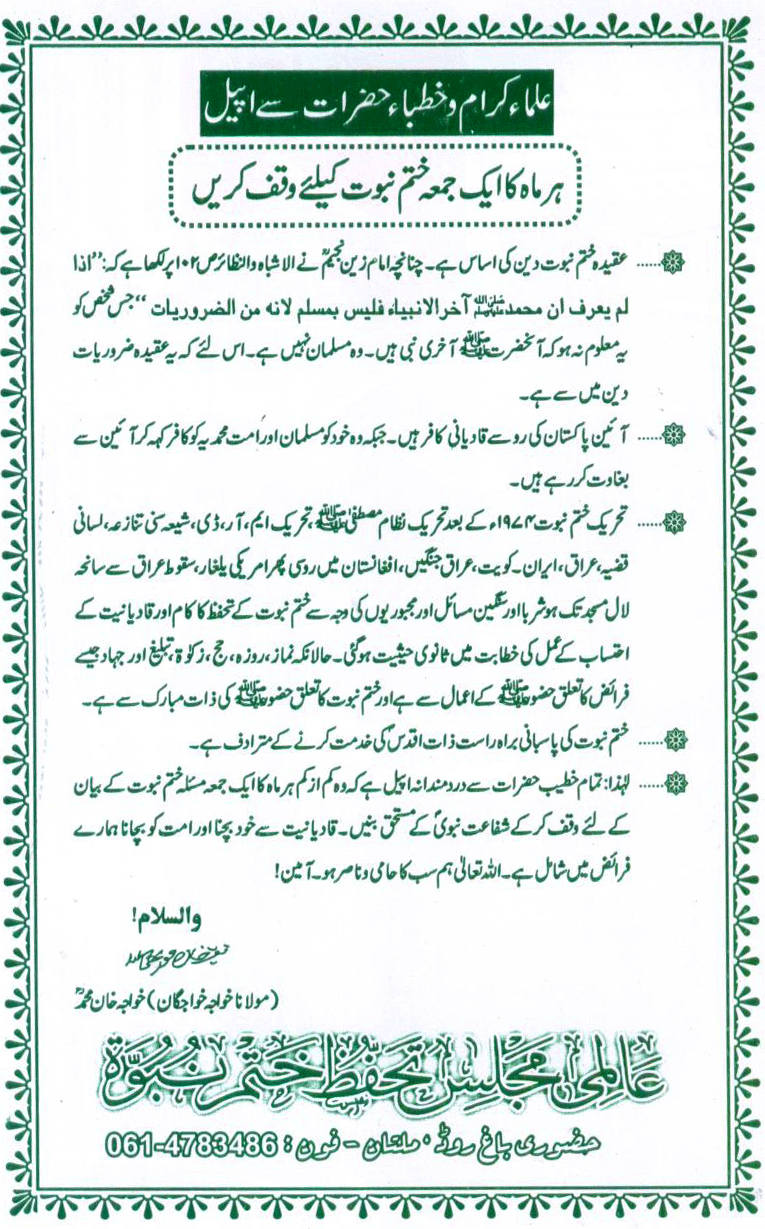 علماء کرام و خطباء حضرات سے اپیل
ہر ماہ کا ایک جمعہ ختم نبوت کیلئے وقف کریں
...... عقیدہ ختم نبوت دین کی اساس ہے۔ چنانچہ امام زین نجیمؒ نے الاشباہ والنظائر ص ۱۰۲ پر لکھا ہے کہ: ’’اذا
لم یعرف ان محمدﷺ آخر الانبیاء فلیس بمسلم لانه من الضروریات‘‘ جس شخص کو
یہ معلوم نہ ہو کہ آنحضرتﷺ آخری نبی ہیں۔ وہ مسلمان نہیں ہے۔ اس لئے کہ یہ عقیدہ ضروریات
دین میں سے ہے۔
...... آئین پاکستان کی رو سے قادیانی کافر ہیں۔ جبکہ وہ خود کو مسلمان اور امت محمدیہ کو کافر کہہ کر آئین سے
بغاوت کر رہے ہیں۔
...... تحریک ختم نبوت ۱۹۷۴ء کے بعد تحریک نظام مصطفیٰﷺ، تحریک ایم، آر، ڈی، شیعہ سنی تنازعہ، لسانی
قضیہ، عراق، ایران۔ کویت، عراق جنگیں، افغانستان میں روسی پھر امریکی یلغار، سقوط عراق سے سانحہ
لال مسجد تک ہوشربا اور سنگین مسائل اور مجبوریوں کی وجہ سے ختم نبوت کے تحفظ کا کام اور قادیانیت کے
احتساب کے عمل کی خطابت میں ثانوی حیثیت ہوگئی۔ حالانکہ نماز، روزہ، حج، زکوٰۃ، تبلیغ اور جہاد جیسے
فرائض کا تعلق حضورﷺ کے اعمال سے ہے اور ختم نبوت کا تعلق حضورﷺ کی ذات مبارک سے ہے۔
...... ختم نبوت کی پاسبانی براہ راست ذات اقدسؐ کی خدمت کرنے کے مترادف ہے۔
...... لہٰذا: تمام خطیب حضرات سے دردمندانہ اپیل ہے کہ وہ کم از کم ہر ماہ کا ایک جمعہ مسئلہ ختم نبوت کے بیان
کے لئے وقف کر کے شفاعت نبویؐ کے مستحق بنیں۔ قادیانیت سے خود بچنا اور امت کو بچانا ہمارے
فرائض میں شامل ہے۔ اللہ تعالیٰ ہم سب کا حامی و ناصر ہو۔ آمین!
والسلام!
(مولانا خواجہ خواجگان) خواجہ خان محمدؒ
عالمی مجلس تحفظ ختم نبوۃ
حضوری باغ روڈ، ملتان - فون : 061-4783486